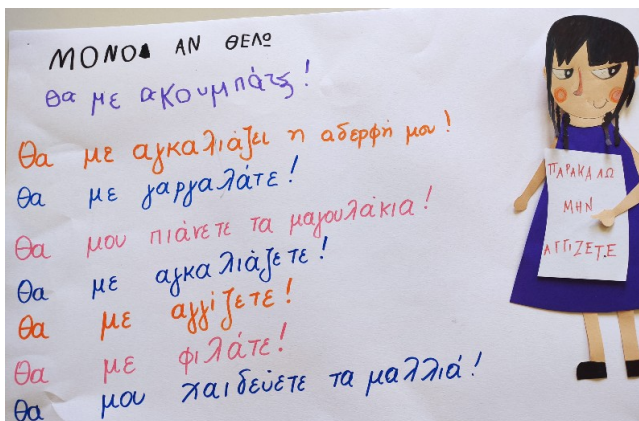 ΜΟΝΟ ΑΝ ΘΕΛΩ
Θα με ακουμπάτε!
Θα με αγκαλιάζει η αδερφή μου!
Θα με γαργαλάτε!
Θα μου πιάνετε τα μαγουλάκια!
Θα με αγκαλιάζετε!
Θα με αγγίζετε!
Θα με φιλάτε!
Θα μου χαιδεύετε τα μαλλιά!
ΠΑΡΑΚΑΛΩ
ΜΗΝ
ΑΓΓΙΖΕΤΕ